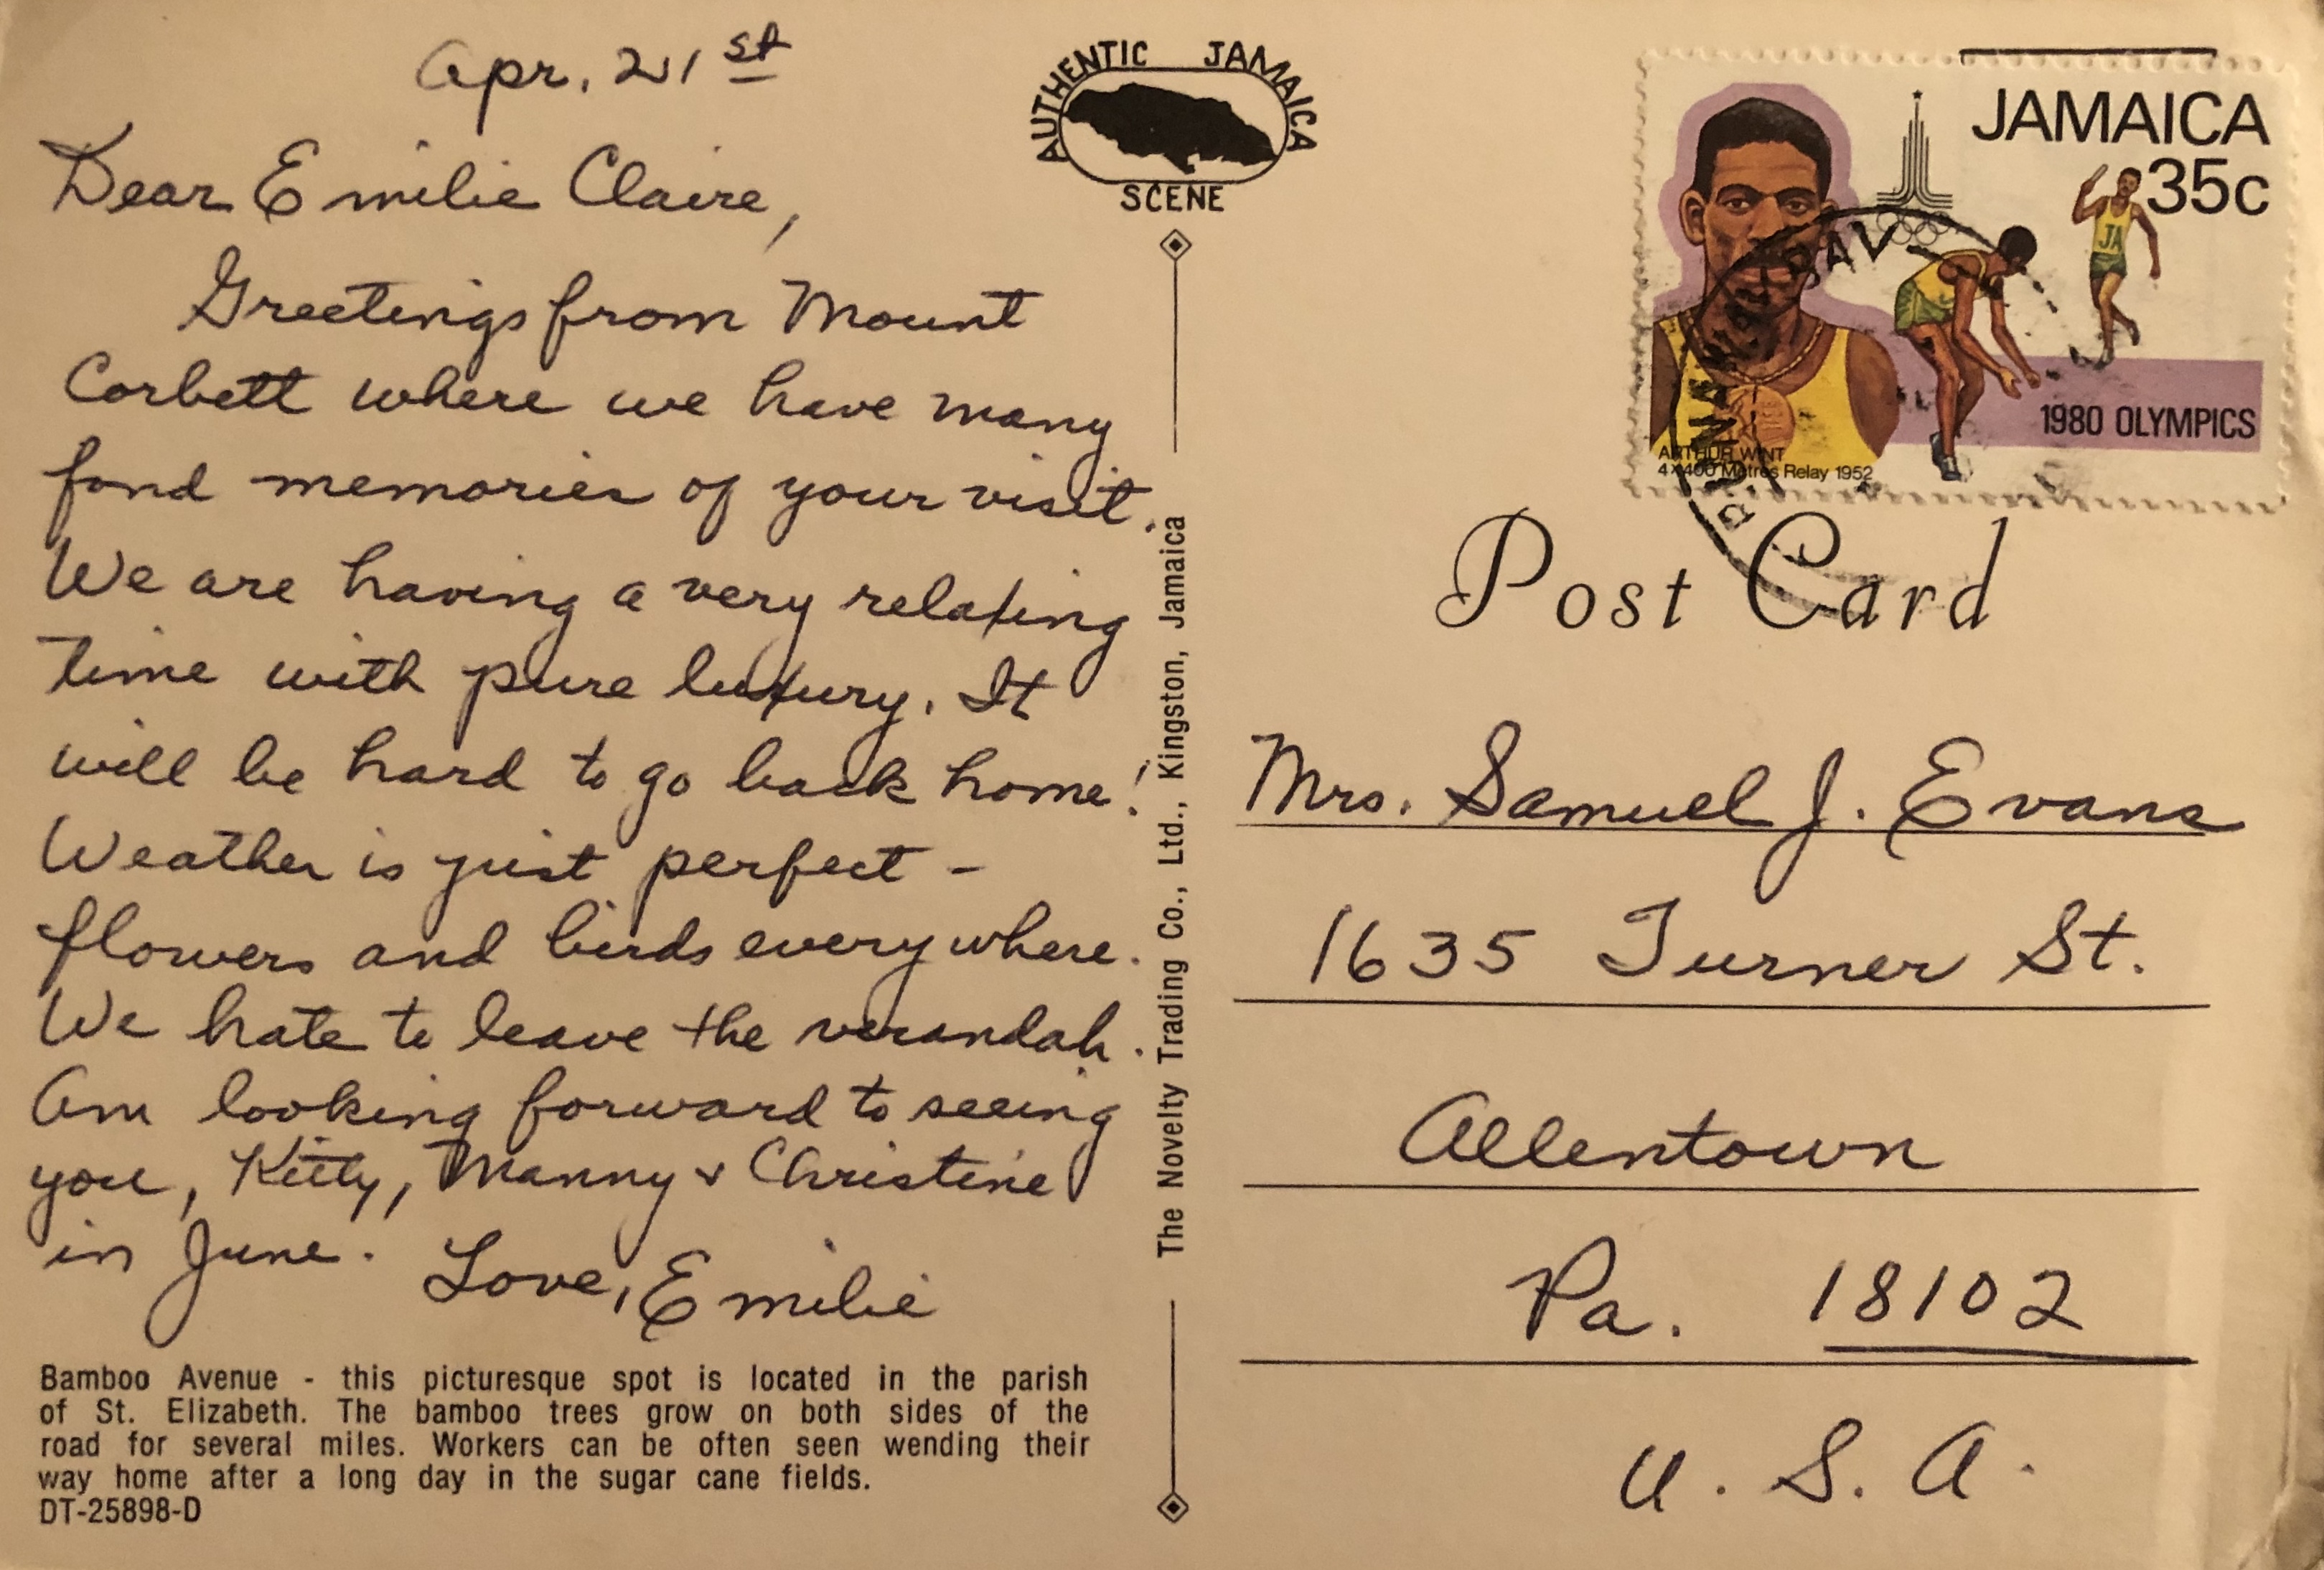 Apr. 21st
Dear Emilie Claire,
Greetings from Mount
Corbett where we have many
fond memories of your visit.
We are having a very relaxing
time with pure luxury. It
will be hard to go back home!
Weather is just perfect -
flowers and birds everywhere.
We hate to leave the verandah.
Am looking forward to seeing
you, Kitty, Manny & Christine
in June. Love, Emilie
Bamboo Avenue - this picturesque spot is located in the parish
of St. Elizabeth. The bamboo trees grow on both sides of the
road for several miles. Workers can be often seen wending their
way home after a long day in the sugar cane fields.
DT-25898-D
AUTHENTIC JAMAICA
SCENE
The Novelty Trading Co., Ltd., Kingston, Jamaica
JAMAICA
35c
JA
1980 OLYMPICS
ARTHUR WINT
4x400 Metres Relay 1952
BAY
Post Card
Mrs. Samuel J. Evans
1635 Turner St.
Allentown
Pa. 18102
U.S.A.